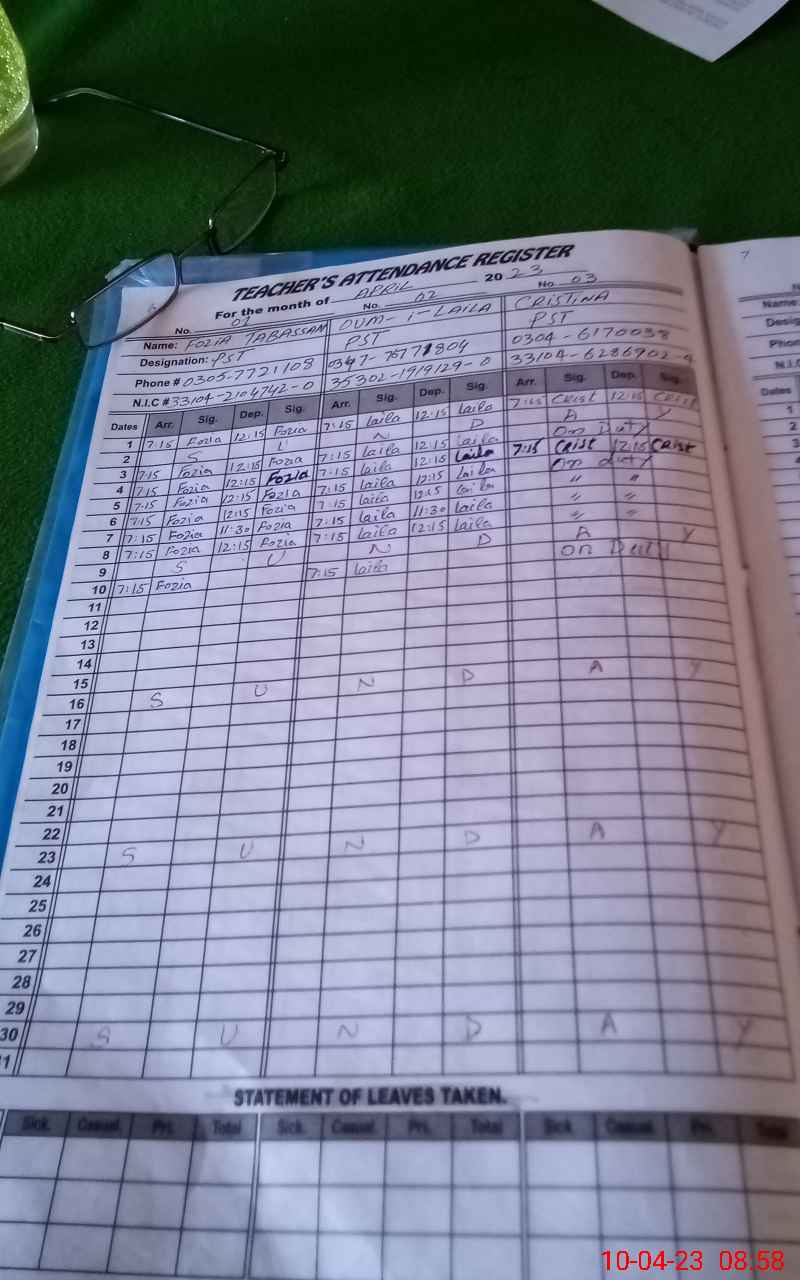 TEACHER'S ATTENDANCE REGISTER
For the month of APRIL 2023
No. 01 No. 02 No. 03
Name: FOZIA TABASSAM OUM-i-LAILA CRISTINA
Designation: PST PST PST
Phone # 0305-7721108 0347-7577804 0304-6170038
N.I.C # 33104-2104742-0 35302-1919129-0 33104-6286902-4
Dates Arr. Sig. Dep. Sig. Arr. Sig. Dep. Sig. Arr. Sig. Dep. Sig.
1 7:15 Fozia 12:15 Fozia 7:15 Laila 12:15 Laila 7:15 CRIST 12:15 CRIST
2 S U N D A Y
3 7:15 Fozia 12:15 Fozia 7:15 Laila 12:15 Laila On Duty
4 7:15 Fozia 12:15 Fozia 7:15 Laila 12:15 Laila 7:15 CRIST 12:15 CRIST
5 7:15 Fozia 12:15 Fozia 7:15 Laila 12:15 Laila On duty
6 7:15 Fozia 12:15 Fozia 7:15 Laila 12:15 Laila " "
7 7:15 Fozia 11:30 Fozia 7:15 Laila 11:30 Laila " "
8 7:15 Fozia 12:15 Fozia 7:15 Laila 12:15 Laila " "
9 S U N D A Y
10 7:15 Fozia 7:15 Laila On Duty
11
12
13
14
15
16 S U N D A Y
17
18
19
20
21
22
23 S U N D A Y
24
25
26
27
28
29
30 S U N D A Y
STATEMENT OF LEAVES TAKEN.
Sick. Casual. Pri. Total Sick. Casual. Pri. Total Sick. Casual. Pri. Total
7
Name:
Dates
1
2
3
4
10-04-23 08:58